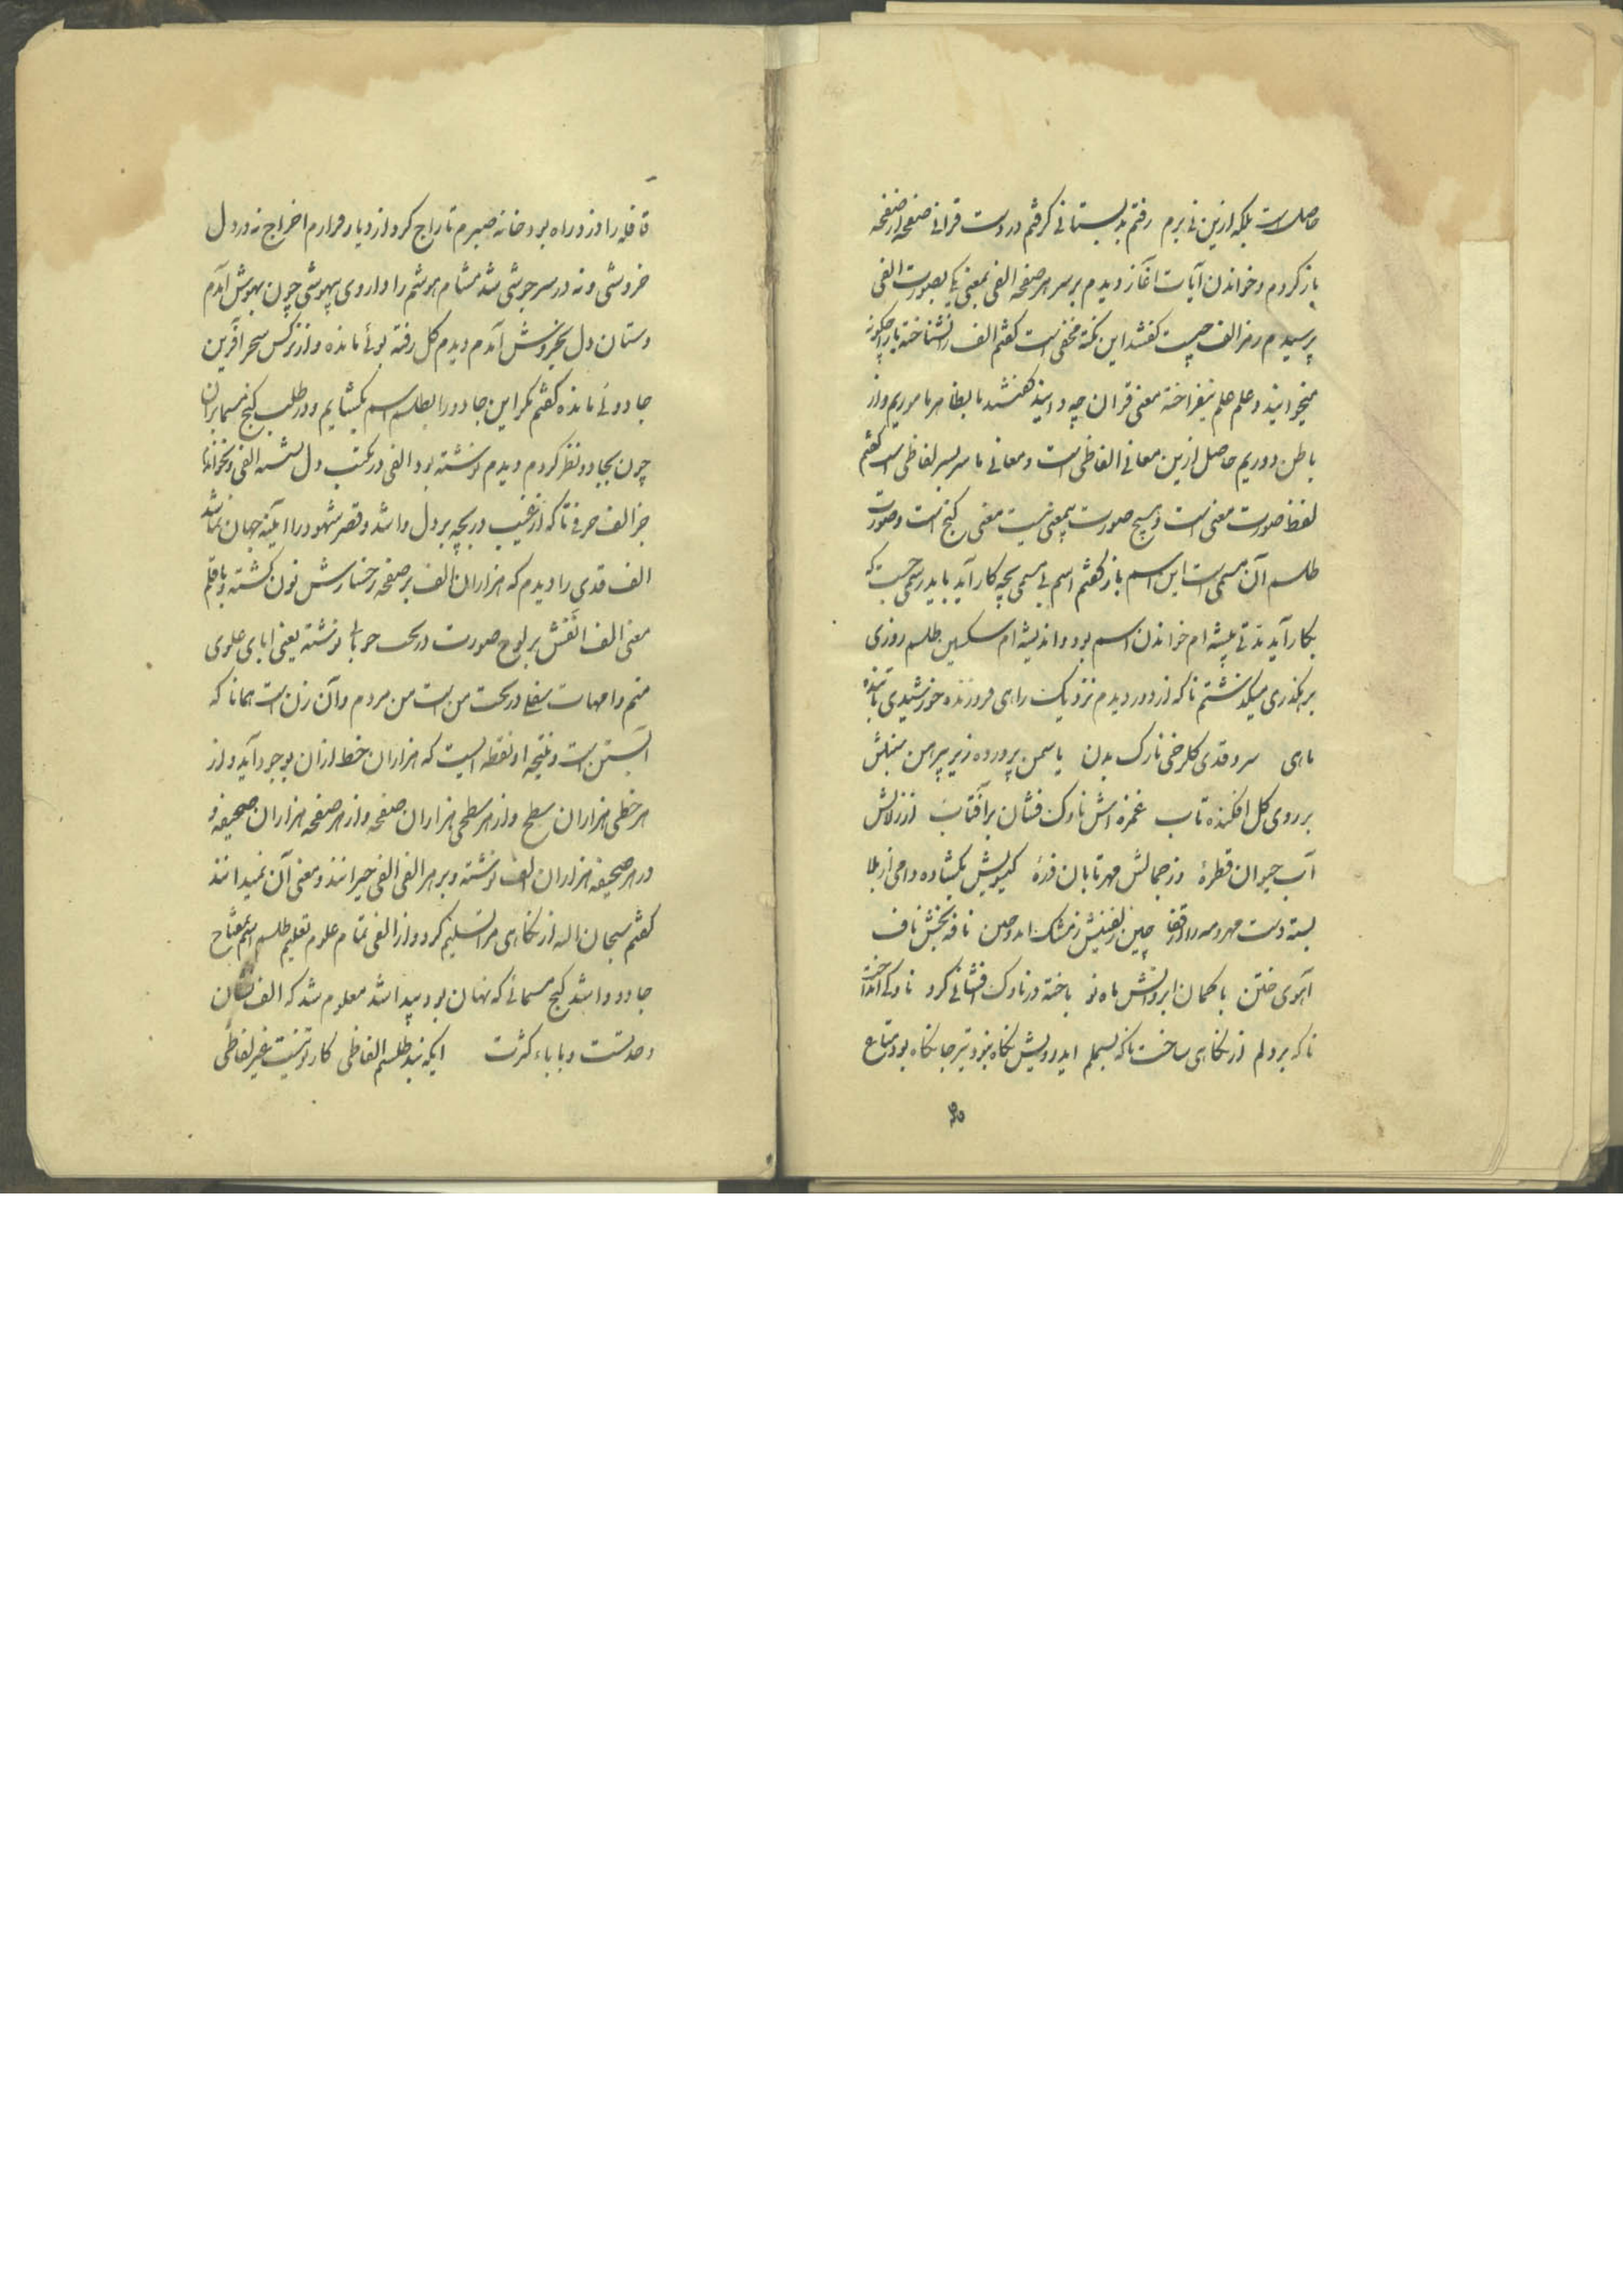 حاصلست بلکه ازین نی برم رفتم بدبستانی گرفتم در دست قرانی صفحه از صفحه
باز کردم و خواندن آیات اغاز دیدم بر سر هر صفحه الفی بمعنی یکی بصورت الفی
پرسیدم رمز الف چیست گفتند این نکته مخفی است گفتم الف را نشناخته با را چکونه
میخوانید و علم علم نیفراخته معنی قران چه دانید گفتند ما بظاهر ماموریم و از
باطن دوریم حاصل ازین معانی الفاظی است و معانی ما سربسر لفاظی است گفتم
لفظ صورت معنی است و هیچ صورت بیمعنی نیست معنی کنج است و صورت
طلسم آن مسمی است این اسم باز گفتم اسم بی مسمی بچه کار آید باید رسمی جست که
بکار آید مدتی پیشه ام خواندن اسم بود و اندیشه ام شکستن طلسم روزی
برهگذری میگذشتم ناکه از دور دیدم نزدیک راهی فروزنده خورشیدی تابنده
ماهی سرو قدی گلرخی نازک بدن یاسمن پرورده زیر پیرهن سنبلش
بر روی گل افکنده تاب غمزه اش ناوک فشان بر آفتاب از زلالش
آب حیوان قطرهٔ وز جمالش مهر تابان ذرهٔ گیسویش بگشاده دامی از بلا
بسته دست مهر و مه را از قفا چین زلفینش ز مشک نافه بخش ناف
آهوی ختن با کمان ابروانش ماه نو باخته در ناوک افشانی گرو ناوکی انداخت
ناکه بر دلم از نگاهی ساخت ناکه بسملم ایدرویش نگاه نبود تیر جانکاه بود متاع
قافله را دزد راه بود خانه صبرم تاراج کرد از دیار قرارم اخراج نه در دل
خروشی و نه در سر جوشی شد مشام هوشم را داروی بیهوشی چون بهوش آمدم
دستان دل بخروش آمدم دیدم گل رفته بوئی مانده و از نرکس سحر آفرین
جادوئی مانده گفتم مگر این جادو را بطلسم اسم بگشایم و در طلب گنج مسما برایم
چون بجادو نظر کردم دیدم نوشته بود الفی در مکتب دل نشسته الفی و نخوانده
جز الف حرفی ناکه از غیب دریچه بر دل وا شد و قصر شهود را آیینه جهان نما شد
الف قدی را دیدم که هزاران الف بر صفحه رخسارش نون گشته و با قلم
معنی الف الفش بر لوح صورت در تحت نوشته یعنی ابای علوی
منم و امهات سفلی در تحت من است من مردم و آن زن است همانا که
آبستن است و نتیجه او نقطه ایست که هزاران خط از آن بوجود آید و از
هر خطی هزاران سطح و از هر سطحی هزاران صفحه و از هر صفحه هزاران صحیفه و
در هر صحیفه هزاران الف نوشته و بر هر الفی الفی حیرانند و معنی آن نمیدانند
گفتم سبحان الله از نگاهی مرا تسلیم کرد و از الفی تمام علوم تعلیم طلسم اسم بمفتاح
جادو وا شد گنج مسمائی که نهان بود پیدا شد معلوم شد که الف نشان
وحدتست و با باء کثرت ایکه بند طلسم الفاظی کار تو نیست غیر لفاظی